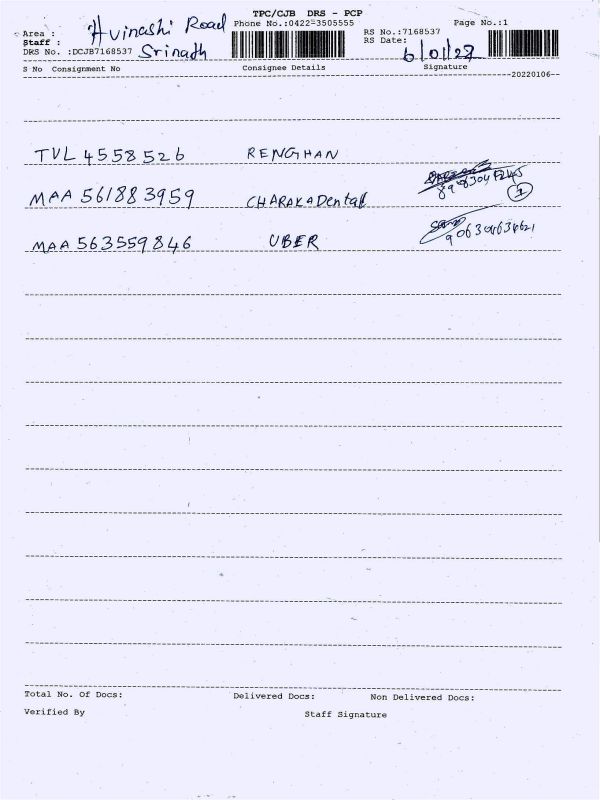 TPC/CJB DRS - PCP
Area : Avinashi Road Phone No.:0422-3505555 Page No.:1
Staff : Srinath RS No.:7168537
DRS No. :DCJB7168537 RS Date: 6/01/22
S No Consignment No Consignee Details Signature
--20220106--
TVL 4558526 RENGHAN
MAA 561883959 CHARAKA Dental
1
MAA 563559846 UBER
Total No. Of Docs: Delivered Docs: Non Delivered Docs:
Verified By Staff Signature